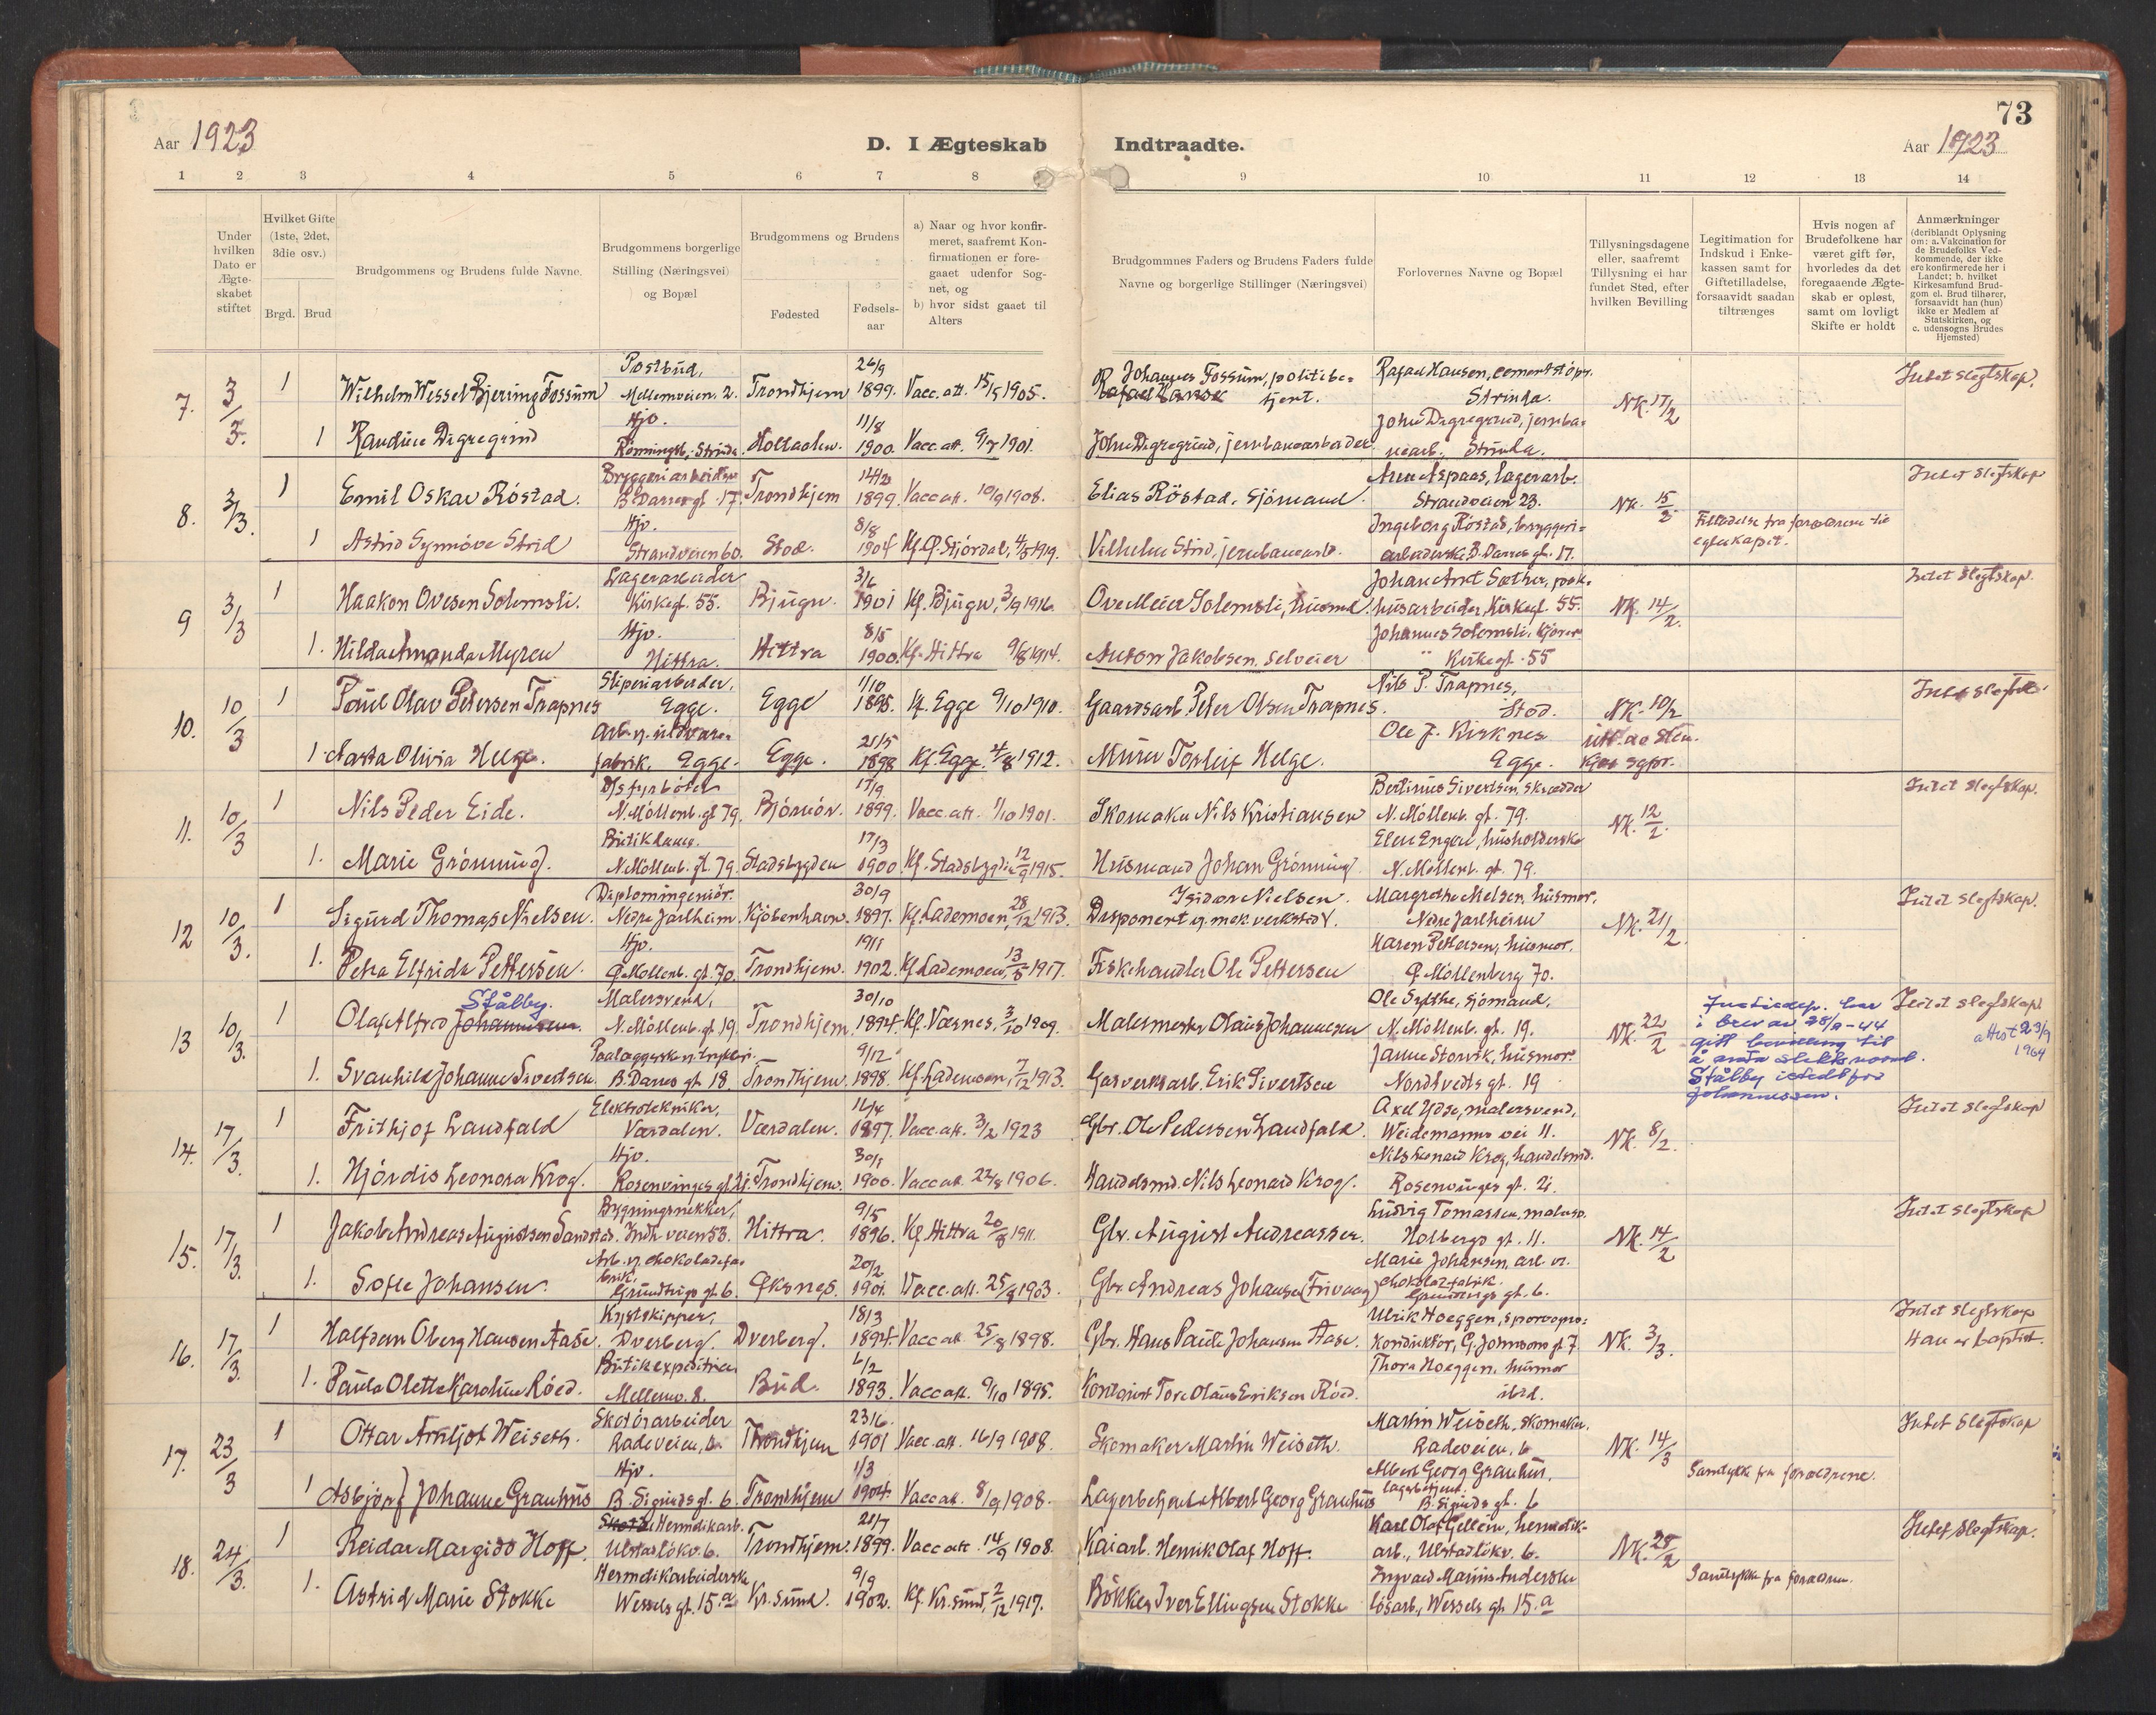 73
Aar 1923
D. I Ægteskab Indtraadte.
Aar 1923
1 2 3 4 5 6 7 8 9 10 11 12 13 14
Under hvilken Dato er Ægte-skabet stiftet
Hvilket Gifte (1ste, 2det, 3die osv.)
Brgd. Brud
Brudgommens og Brudens fulde Navne.
Brudgommens borgerlige Stilling (Næringsvei) og Bopæl
Brudgommens og Brudens
Fødested
Fødsels-aar
a) Naar og hvor konfir-meret, saafremt Kon-firmationen er fore-gaaet udenfor Sog-net, og
b) hvor sidst gaaet til Alters
Brudgommnes Faders og Brudens Faders fulde Navne og borgerlige Stillinger (Næringsvei)
Forlovernes Navne og Bopæl
Tillysningsdagene eller, saafremt Tillysning ei har fundet Sted, efter hvilken Bevilling
Legitimation for Indskud i Enke-kassen samt for Giftetilladelse, forsaavidt saadan tiltrænges
Hvis nogen af Brudefolkene har været gift før, hvorledes da det foregaaende Ægte-skab er opløst, samt om lovligt Skifte er holdt
Anmærkninger (deriblandt Oplysning om: a. Vakcination for de Brudefolks Ved-kommende, der ikke ere konfirmerede her i Landet; b. hvilket Kirkesamfund Brud-gom el. Brud tilhører, forsaavidt han (hun) ikke er Medlem af Statskirken, og c. udensogns Brudes Hjemsted)
7. 3/3. 1 Wilhelm Wessel Bjering Fossum Postbud, Mellemveien 2. Trondhjem 26/9 1899. Vacc. att. 15/5 1905. Johannes Fossum, politibe-tjent. Rafael Hansen, cementstöper. Strinda. NK. 17/2 Intet slegtskap.
1 Randine Digregrind Hjv. Rönningsl., Strinda. Holtaalen. 11/8 1900. Vacc. att. 9/7 1901. John Digregrind, jernbanearbeider John Digregrind, jernba-nearb. Strinda.
8. 3/3. 1 Emil Oskar Röstad. Bryggeriarbeider B. Darres gt. 17. Trondhjem 14/2 1899. Vacc att. 10/9 1908. Elias Röstad, Sjömand. Arne Aspaas, lagerarb. Strandveien 23. NK. 15/2 Intet slegtskap
1 Astrid Synnöve Strid Hjv. Strandveien 60. Stod. 8/8 1904 Kf. Ö. Stjördal, 4/5 1919. Vilhelm Strid, jernbanearb. Ingeborg Röstad, bryggeri-arbeiderske B. Darres gt. 17. Tilladelse fra forældrene til egteskapet.
9 3/3 1 Haakon Ovesen Solemsli. Lagerarbeider Kirkegt. 55. Bjugn. 3/6 1901 Kf. Bjugn, 3/9 1916. Ove Meier Solemsli, husmd. Johan Arnt Sæther, pak-husarbeider, Kirkegt. 55. NK. 14/2. Intet slegtskap.
1. Hilda Amanda Myren Hjv. Hittra. Hittra 8/5 1900. Kf. Hittra 9/8 1914. Anton Jakobsen, Selveier Johannes Solemsli, kjörer " Kirkegt. 55
10. 10/3 1 Poul Olav Petersen Trapnes Sliperiarbeider, Egge. Egge 1/10 1895. Kf. Egge 9/10 1910. Gaardsarb. Peter Olsen Trapnes. Nils P. Trapnes, Stod. NK. 10/2 Intet slegtsk.
1. Aasta Olivia Helge. Arb. v. uldvare-fabrik, Egge. Egge. 21/5 1898 Kf. Egge. 4/8 1912. Murer Torleif Helge. Ole J. Kirknes Egge.
11. 10/3 1 Nils Peder Eide. D/s fyrböter N. Möllenb. gt 79. Björnör. 17/9 1899. Vacc. att. 1/10 1901. Skomaker Nils Kristiansen Bertinus Sivertsen, skrædder N. Möllenb. gt. 79. NK. 12/2. Intet slegtskap.
1. Marie Grönning. Butikdame. N. Möllenb. gt. 79. Stadsbygden 17/3 1900 Kf. Stadsbygden 12/9 1915. Husmand Johan Grönning. Elen Engen, husholderske N. Möllenb. gt. 79.
12 10/3. 1 Sigurd Thomas Nielsen. Diplomingeniör. Nedre Jarlheim. Kjöbenhavn. 30/9 1897. Kf. Lademoen, 28/12 1913. Isidor Nielsen. Disponent v. mek verksted. Margrethe Nielsen, husmor. Nedre Jarlheim NK. 21/2. Intet slegtskap.
1. Petra Elfrida Pettersen. Hjv. Ö. Möllenb. gt. 70. Trondhjem. 19/1 1902. Kf. Lademoen, 13/5 1917. Fiskehandler Ole Pettersen Karen Pettersen, husmor. Ö. Möllenberg 70.
13 10/3. 1 Olaf Alfred Johannesen. Stålby. Malersvend, N. Möllenb. gt. 19. Trondhjem. 30/10 1894. Kf. Værnes, 3/10 1909. Malermester Olaus Johannesen Ole Sylthe, sjömand, N. Möllenb. gt. 19. NK. 22/2 Justisdep. har i brev av 28/9-44 gitt bevilling til å anta slektsnavn. Stålby istedt for Johannessen. Intet slegtskap attest 23/9 1964
1. Svanhild Johanne Sivertsen. Paalæggerske v. trykkeri. B. Darres gt 18. Trondhjem. 9/12 1898. Kf. Lademoen, 7/12 1913. Gasverksarb. Erik Sivertsen Janna Storvik, husmor. Nordtvedts gt. 19
14. 17/3. 1 Frithjof Landfald Elektrotekniker, Værdalen. Værdalen. 16/4 1897. Vacc. att. 3/2 1923 Gbr. Ole Pedersen Landfald. Axel Ydse, malersvend, Weidemanns vei 11. NK. 8/2. Intet slegtskap
1. Hjördis Leonora Krog. Hjv. Rosenvinges gt. 2i. Trondhjem. 30/1 1900. Vacc att. 22/8 1906. Handelsmd. Nils Leonard Krog. Nils Leonard Krog, handelsmd. Rosenvinges gt. 2i.
15. 17/3. 1 Jakob Andreas Augustsen Sandstad. Bygningsnekker, Indh. veien 53. Hittra. 9/5 1896. Kf. Hittra 20/8 1911. Gbr. August Andreassen. Ludvig Tomassen, malersv. Holbergs gt. 11. NK. 14/2 Intet slegtskap
1. Sofie Johansen. Arb. v. chokoladefa-brik. Grundtvigs gt. 6. Öksnes. 20/2 1901. Vacc. att. 25/8 1903. Gbr. Andreas Johansen (Frivaag) Marie Johansen, arb. v. chokoladefabrik. Grundtvigs gt. 6.
16. 17/3. 1 Halfdan Oberg Hansen Aase. Kystskipper, Dverberg. Dverberg. 18/3 1894. Vacc att 25/8 1898. Gbr. Hans Paule Johansen Aase. Ulrik Hoeggen, sporvogns-konduktör, G. Johnsons gt 7. NK. 3/3. Intet slegtskap Han er baptist.
1. Paula Olette Karoline Röed. Butikexpeditrice, Mellemv. 8. Bud. 6/2 1893. Vacc att. 9/10 1895. Kontorist Tore Olaus Eriksen Röed. Thora Hoeggen, husmor ibid.
17. 23/3 1 Ottar Arnljot Weiseth. Skotöiarbeider Radeveien, 6. Trondhjem 23/6. 1901 Vacc. att. 16/9 1908. Skomaker Martin Weiseth. Martin Weiseth, skomaker, Radeveien, 6 NK. 14/3 Intet slegtskap
1 Asbjörg Johanne Grauhus Hjv. B. Sigurds gt. 6. Trondhjem 1/3 1904. Vacc att. 8/9 1908. Lagerbetjent Albert Georg Grauhus Albert Georg Grauhus, lagerbetjent. B. Sigurds gt. 6 Samtykke fra forældrene.
18. 24/3. 1 Reidar Margido Hoff. Hermetikarb. Ulstadlökv. 6. Trondhjem. 21/7 1899. Vacc att. 14/9 1908. Kaiarb. Henrik Olaf Hoff. Karl Olaf Gellein, hermetik-arb., Ulstadlökv. 6. NK. 25/2 Intet slegtskap.
1. Astrid Marie Stokke Hermetikarbeiderske Wessels gt. 15.a Kr. sund. 9/9 1902. Kf. Kr. sund, 2/12 1917. Bökker Iver Ellingsen Stokke Ingvald Marius Andersen lösarb., Wessels gt. 15.a Samtykke fra forældrene.